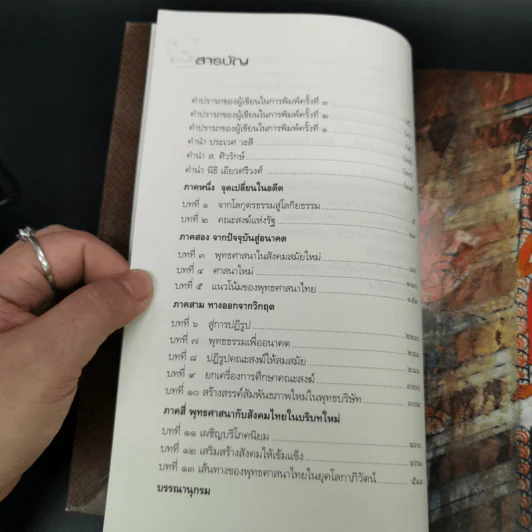 สารบัญ
คำปรารภของผู้เขียนในการพิมพ์ครั้งที่ ๓
คำปรารภของผู้เขียนในการพิมพ์ครั้งที่ ๒
คำปรารภของผู้เขียนในการพิมพ์ครั้งที่ ๑
คำนำ ประเวศ วะสี
คำนำ ส. ศิวรักษ์
คำนำ นิธิ เอียวศรีวงศ์
ภาคหนึ่ง จุดเปลี่ยนในอดีต
บทที่ ๑ จากโลกุตรธรรมสู่โลกียธรรม
บทที่ ๒ คณะสงฆ์แห่งรัฐ
ภาคสอง จากปัจจุบันสู่อนาคต
บทที่ ๓ พุทธศาสนาในสังคมสมัยใหม่
บทที่ ๔ ศาสนาใหม่
บทที่ ๕ แนวโน้มของพุทธศาสนาไทย
ภาคสาม ทางออกจากวิกฤต
บทที่ ๖ สู่การปฏิรูป
บทที่ ๗ พุทธธรรมเพื่ออนาคต
บทที่ ๘ ปฏิรูปคณะสงฆ์ให้สมสมัย
บทที่ ๙ ยกเครื่องการศึกษาคณะสงฆ์
บทที่ ๑๐ สร้างสรรค์สัมพันธภาพใหม่ในพุทธบริษัท
ภาคสี่ พุทธศาสนากับสังคมไทยในบริบทใหม่
บทที่ ๑๑ เผชิญบริโภคนิยม
บทที่ ๑๒ เสริมสร้างสังคมให้เข้มแข็ง
บทที่ ๑๓ เส้นทางของพุทธศาสนาไทยในยุคโลกาภิวัตน์
บรรณานุกรม